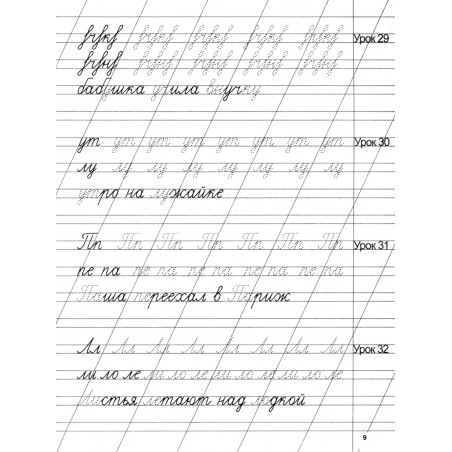 вчвкв вчвкв вчвкв вчвкв вчвкв Урок 29
бабушка учила внучку
ут ут ут ут ут ут ут ут Урок 30
лу лу лу лу лу лу лу лу
утро на лужайке
Пп Пп Пп Пп Пп Пп Пп Урок 31
пе па пе па пе па пе па пе па
Паша переехал в Париж
Лл Лл Лл Лл Лл Лл Лл Лл Урок 32
ли ло ле ли ло ле ли ло ле ли ло ле
Листья летают над лодкой
9